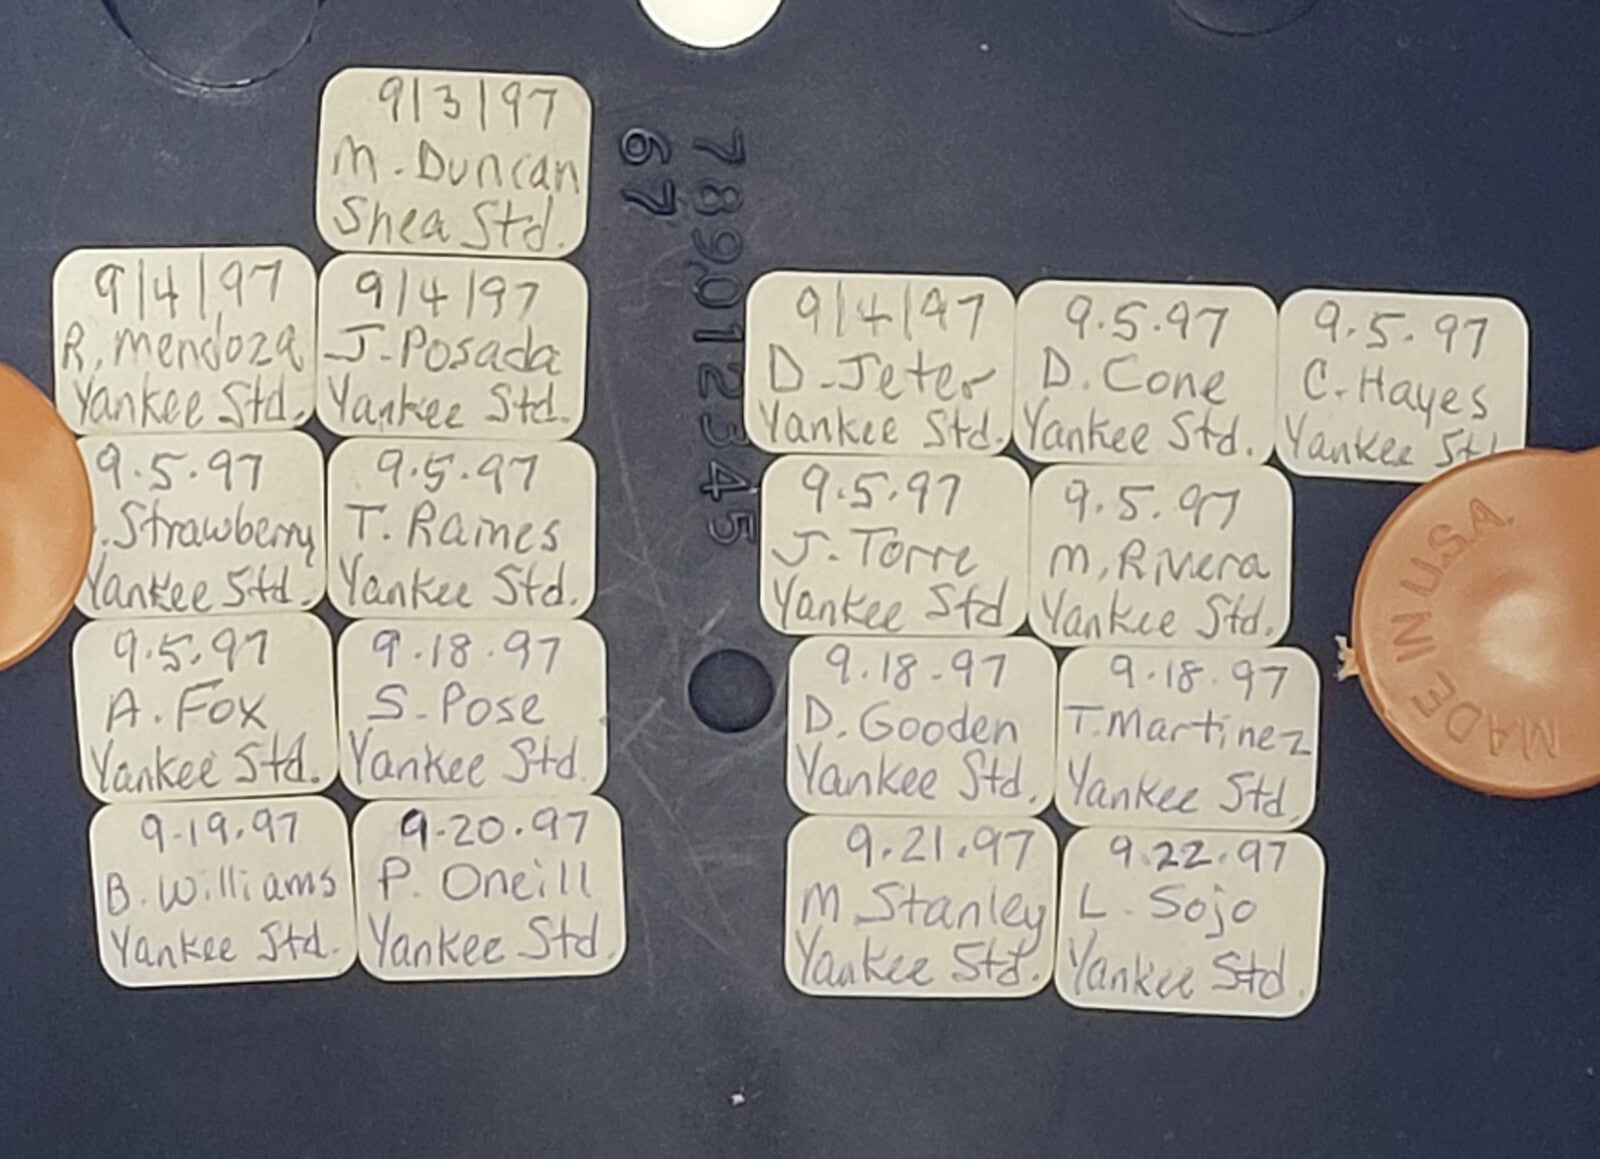 9/3/97
M. Duncan
Shea Std.
9/4/97
R. Mendoza
Yankee Std.
9/4/97
J. Posada
Yankee Std.
9.5.97
. Strawberry
Yankee Std.
9.5.97
T. Raines
Yankee Std.
9.5.97
A. Fox
Yankee Std.
9.18.97
S. Pose
Yankee Std.
9.19.97
B. Williams
Yankee Std.
9.20.97
P. Oneill
Yankee Std.
67
789012345
9/4/97
D. Jeter
Yankee Std.
9.5.97
D. Cone
Yankee Std.
9.5.97
C. Hayes
Yankee Std
9.5.97
J. Torre
Yankee Std
9.5.97
M. Rivera
Yankee Std.
9.18.97
D. Gooden
Yankee Std.
9.18.97
T. Martinez
Yankee Std.
9.21.97
M Stanley
Yankee Std.
9.22.97
L. Sojo
Yankee Std.
MADE IN U.S.A.